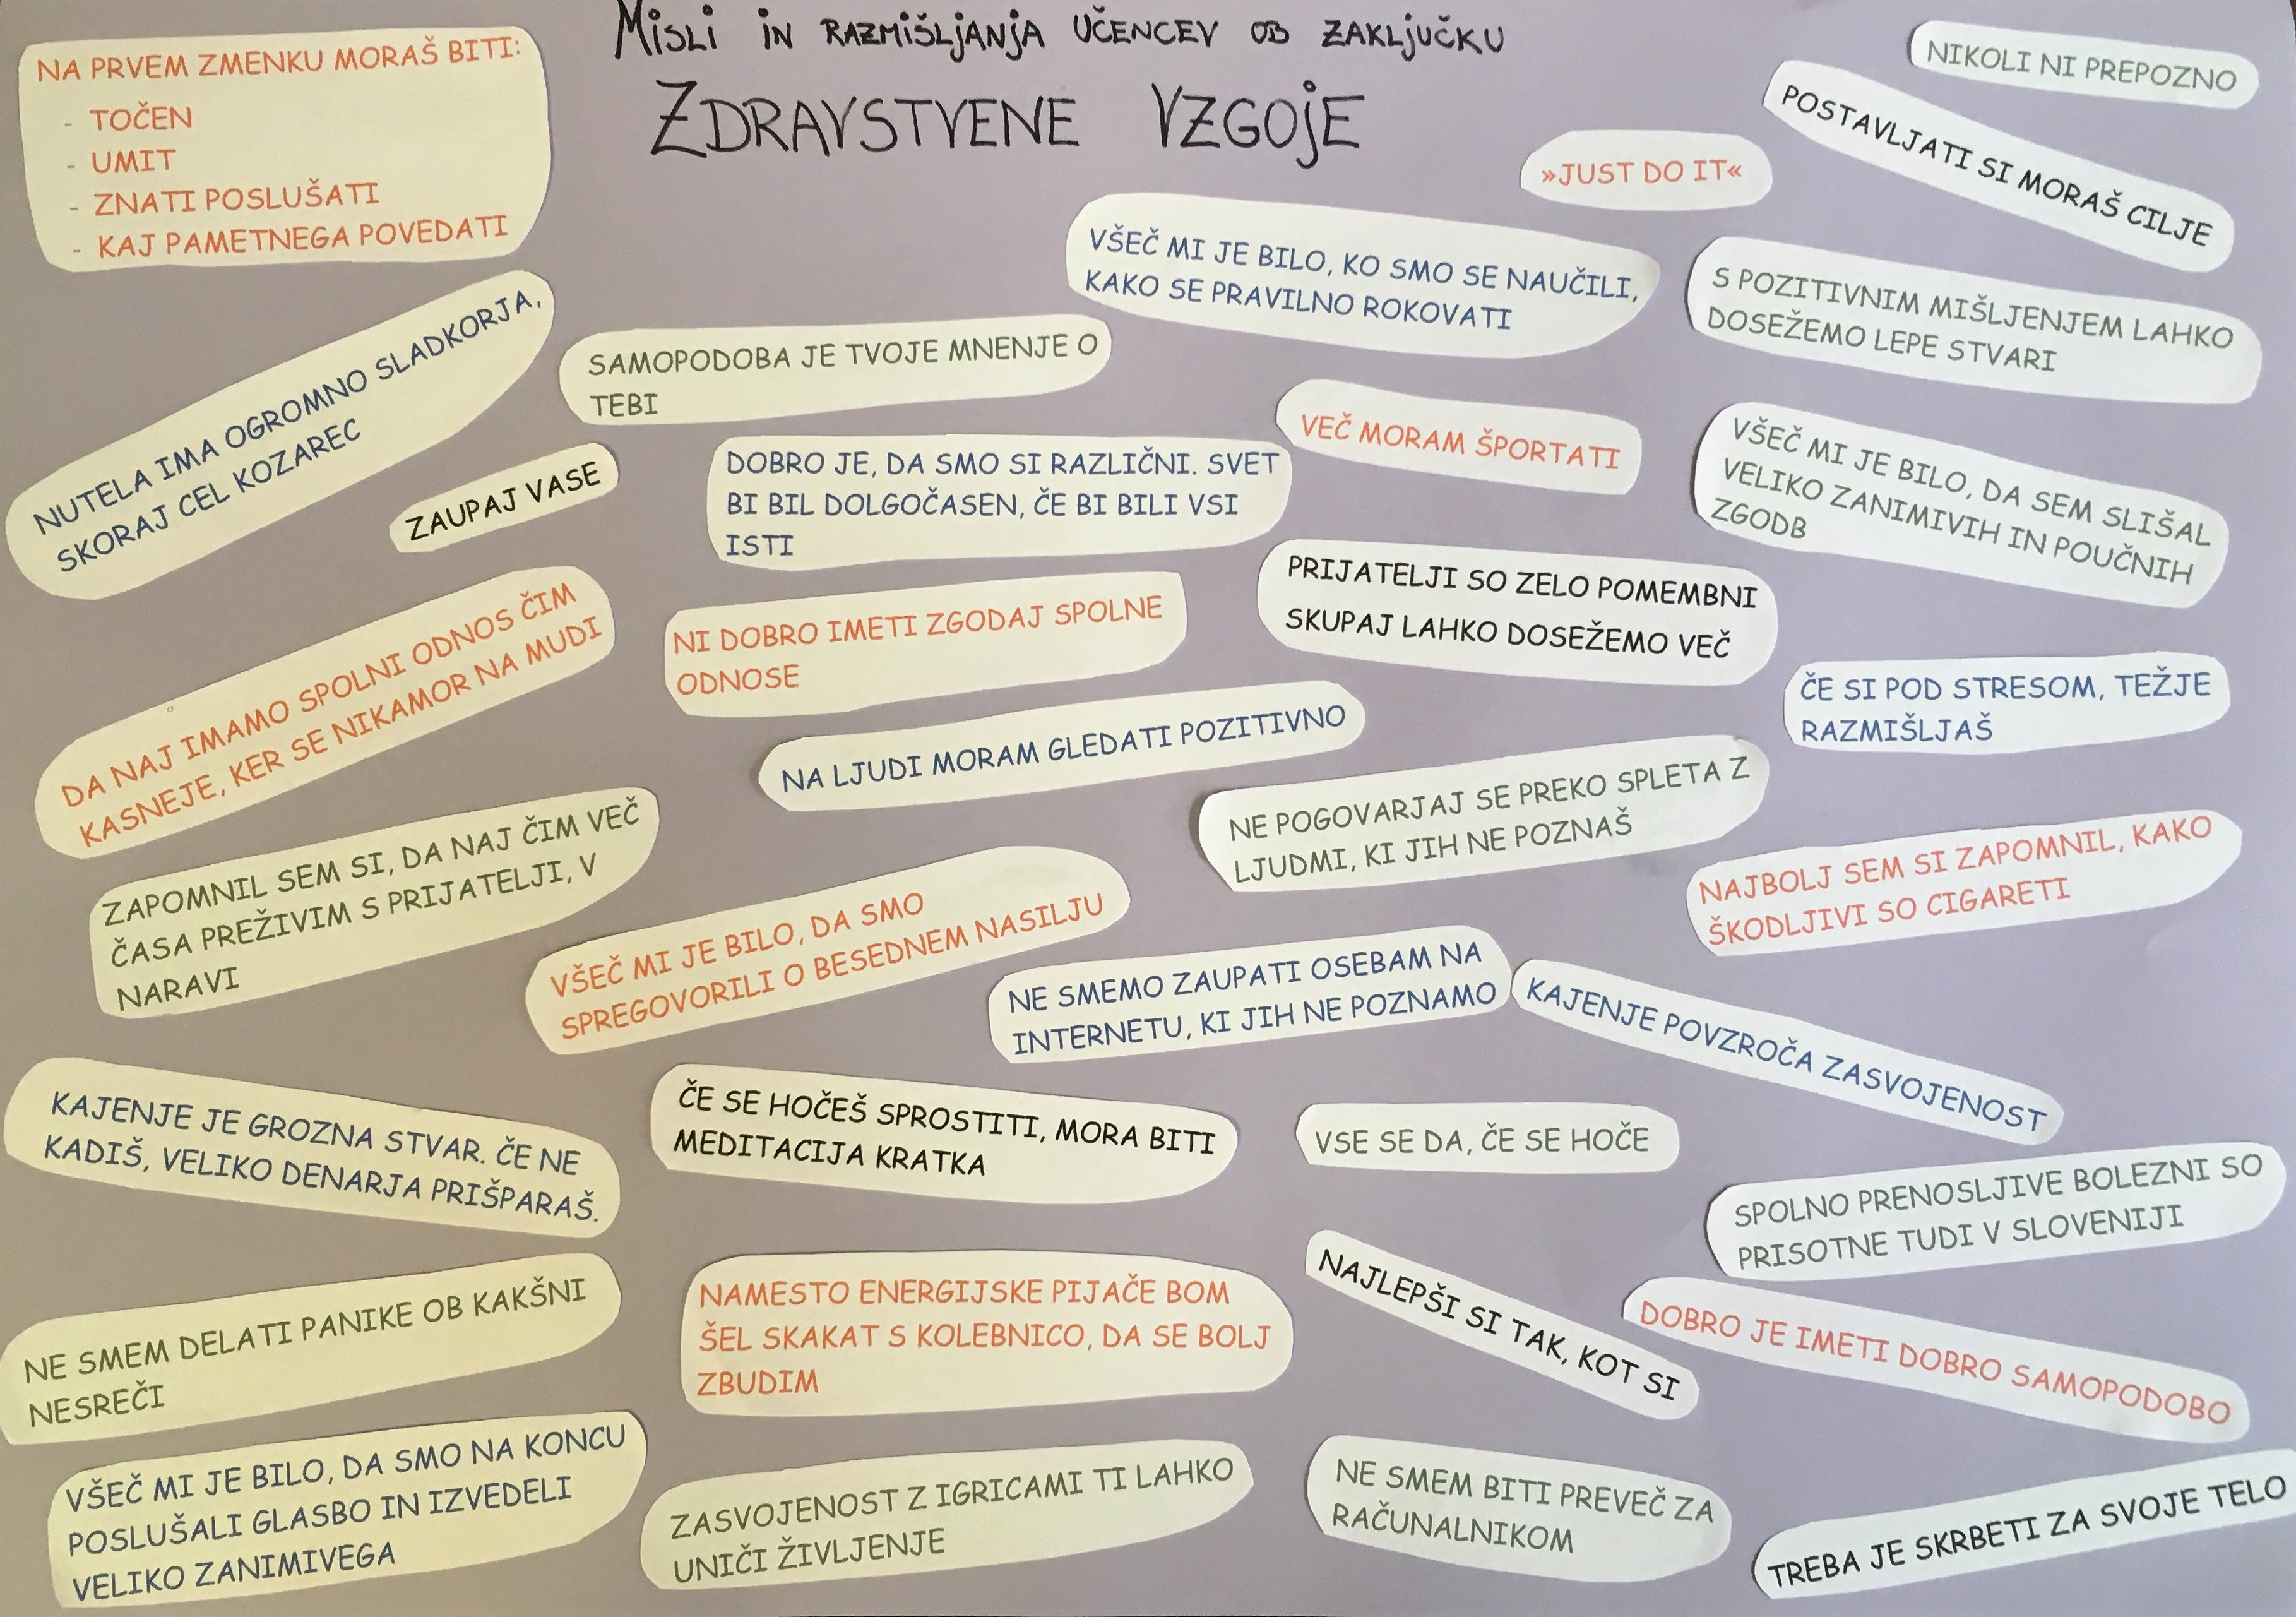 Misli in razmišljanja učencev ob zaključku
Zdravstvene vzgoje
NA PRVEM ZMENKU MORAŠ BITI:
- TOČEN
- UMIT
- ZNATI POSLUŠATI
- KAJ PAMETNEGA POVEDATI
NIKOLI NI PREPOZNO
POSTAVLJATI SI MORAŠ CILJE
»JUST DO IT«
VŠEČ MI JE BILO, KO SMO SE NAUČILI,
KAKO SE PRAVILNO ROKOVATI
S POZITIVNIM MIŠLJENJEM LAHKO
DOSEŽEMO LEPE STVARI
NUTELA IMA OGROMNO SLADKORJA,
SKORAJ CEL KOZAREC
SAMOPODOBA JE TVOJE MNENJE O
TEBI
VEČ MORAM ŠPORTATI
VŠEČ MI JE BILO, DA SEM SLIŠAL
VELIKO ZANIMIVIH IN POUČNIH
ZGODB
ZAUPAJ VASE
DOBRO JE, DA SMO SI RAZLIČNI. SVET
BI BIL DOLGOČASEN, ČE BI BILI VSI
ISTI
PRIJATELJI SO ZELO POMEMBNI
SKUPAJ LAHKO DOSEŽEMO VEČ
DA NAJ IMAMO SPOLNI ODNOS ČIM
KASNEJE, KER SE NIKAMOR NA MUDI
NI DOBRO IMETI ZGODAJ SPOLNE
ODNOSE
ČE SI POD STRESOM, TEŽJE
RAZMIŠLJAŠ
NA LJUDI MORAM GLEDATI POZITIVNO
NE POGOVARJAJ SE PREKO SPLETA Z
LJUDMI, KI JIH NE POZNAŠ
ZAPOMNIL SEM SI, DA NAJ ČIM VEČ
ČASA PREŽIVIM S PRIJATELJI, V
NARAVI
NAJBOLJ SEM SI ZAPOMNIL, KAKO
ŠKODLJIVI SO CIGARETI
VŠEČ MI JE BILO, DA SMO
SPREGOVORILI O BESEDNEM NASILJU
NE SMEMO ZAUPATI OSEBAM NA
INTERNETU, KI JIH NE POZNAMO
KAJENJE POVZROČA ZASVOJENOST
KAJENJE JE GROZNA STVAR. ČE NE
KADIŠ, VELIKO DENARJA PRIŠPARAŠ.
ČE SE HOČEŠ SPROSTITI, MORA BITI
MEDITACIJA KRATKA
VSE SE DA, ČE SE HOČE
SPOLNO PRENOSLJIVE BOLEZNI SO
PRISOTNE TUDI V SLOVENIJI
NE SMEM DELATI PANIKE OB KAKŠNI
NESREČI
NAMESTO ENERGIJSKE PIJAČE BOM
ŠEL SKAKAT S KOLEBNICO, DA SE BOLJ
ZBUDIM
NAJLEPŠI SI TAK, KOT SI
DOBRO JE IMETI DOBRO SAMOPODOBO
VŠEČ MI JE BILO, DA SMO NA KONCU
POSLUŠALI GLASBO IN IZVEDELI
VELIKO ZANIMIVEGA
ZASVOJENOST Z IGRICAMI TI LAHKO
UNIČI ŽIVLJENJE
NE SMEM BITI PREVEČ ZA
RAČUNALNIKOM
TREBA JE SKRBETI ZA SVOJE TELO